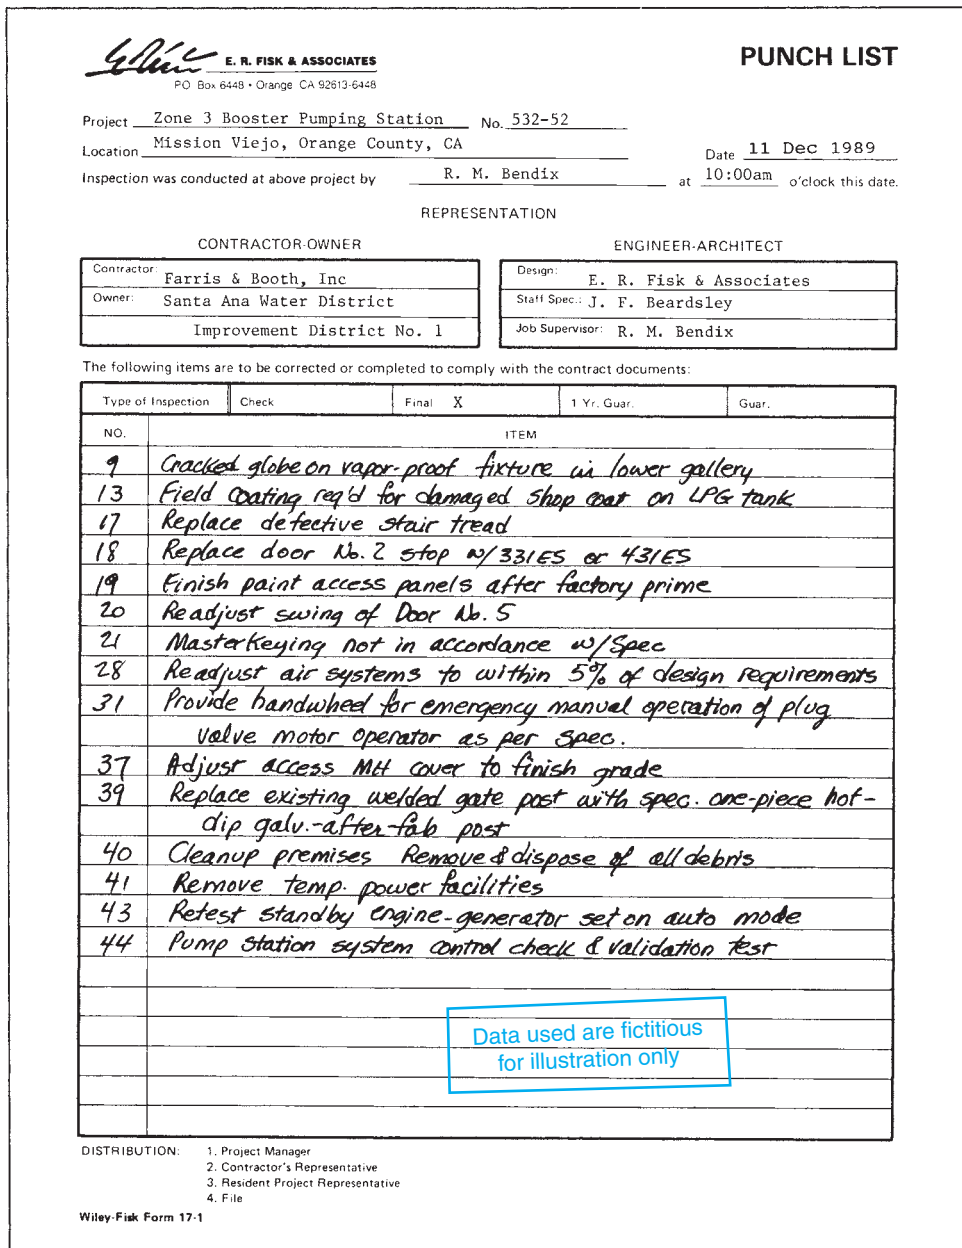 E. R. FISK & ASSOCIATES
PO Box 6448 • Orange CA 92613-6448
PUNCH LIST
Project Zone 3 Booster Pumping Station No. 532-52
Location Mission Viejo, Orange County, CA
Date 11 Dec 1989
Inspection was conducted at above project by R. M. Bendix at 10:00am o'clock this date.
REPRESENTATION
CONTRACTOR-OWNER
Contractor: Farris & Booth, Inc
Owner: Santa Ana Water District
Improvement District No. 1
ENGINEER-ARCHITECT
Design: E. R. Fisk & Associates
Staff Spec.: J. F. Beardsley
Job Supervisor: R. M. Bendix
The following items are to be corrected or completed to comply with the contract documents:
Type of Inspection Check Final X 1 Yr. Guar. Guar.
NO. ITEM
9 Cracked globe on vapor-proof fixture in lower gallery
13 Field coating req'd for damaged shop coat on LPG tank
17 Replace defective stair tread
18 Replace door No. 2 stop w/331ES or 431ES
19 Finish paint access panels after factory prime
20 Readjust swing of Door No. 5
21 Master Keying not in accordance w/Spec
28 Readjust air systems to within 5% of design requirements
31 Provide handwheel for emergency manual operation of plug
valve motor operator as per spec.
37 Adjust access MH cover to finish grade
39 Replace existing welded gate post with spec. one-piece hot-
dip galv.-after-fab post
40 Cleanup premises Remove & dispose of all debris
41 Remove temp. power facilities
43 Retest standby engine-generator set on auto mode
44 Pump Station system control check & validation test
Data used are fictitious
for illustration only
DISTRIBUTION: 1. Project Manager
2. Contractor's Representative
3. Resident Project Representative
4. File
Wiley-Fisk Form 17-1